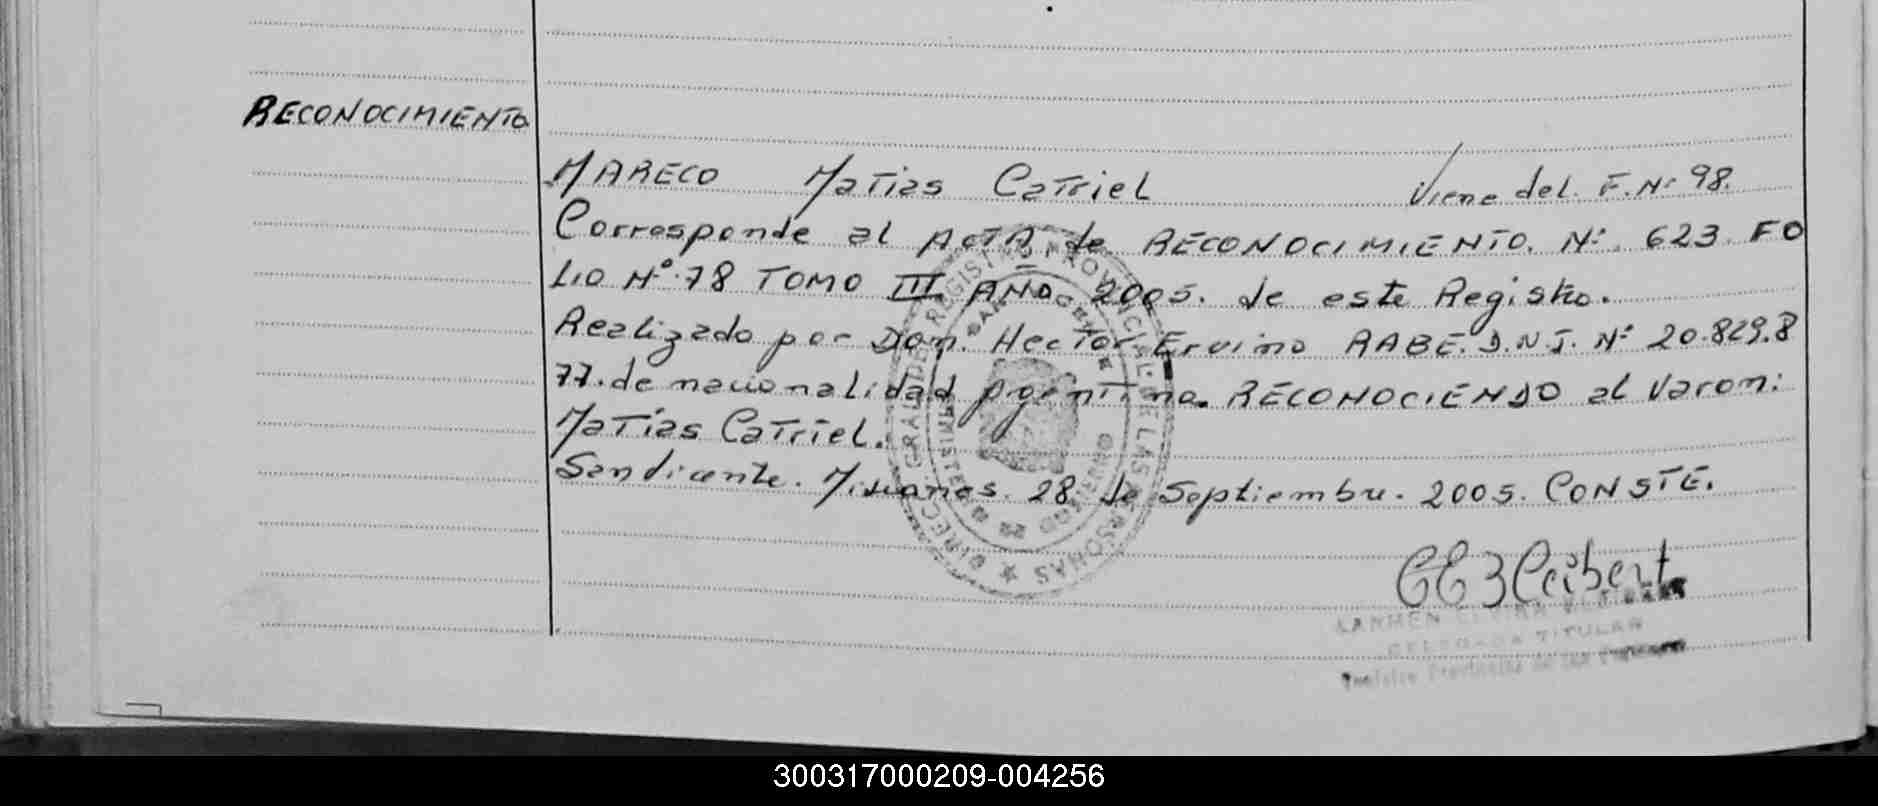 RECONOCIMIENTO
MARECO Matias Catriel Viene del. F. Nº 98.
Corresponde al ACTA de RECONOCIMIENTO. Nº. 623 FO
LIO Nº.78 TOMO III AÑO 2005. de este Registro.
Realizado por Don: Hector Ervino RABE. D.N.I. Nº 20.829.8
77. de nacionalidad Argentina. RECONOCIENDO al Varon:
Matias Catriel.
San Vicente. Misiones. 28 de Septiembre. 2005. CONSTE.
DIREC. GRAL. DEL REGISTRO PROVINCIAL DE LAS PERSONAS
CARMEN
DELEGADA TITULAR
Registro Provincial de las Personas
300317000209-004256